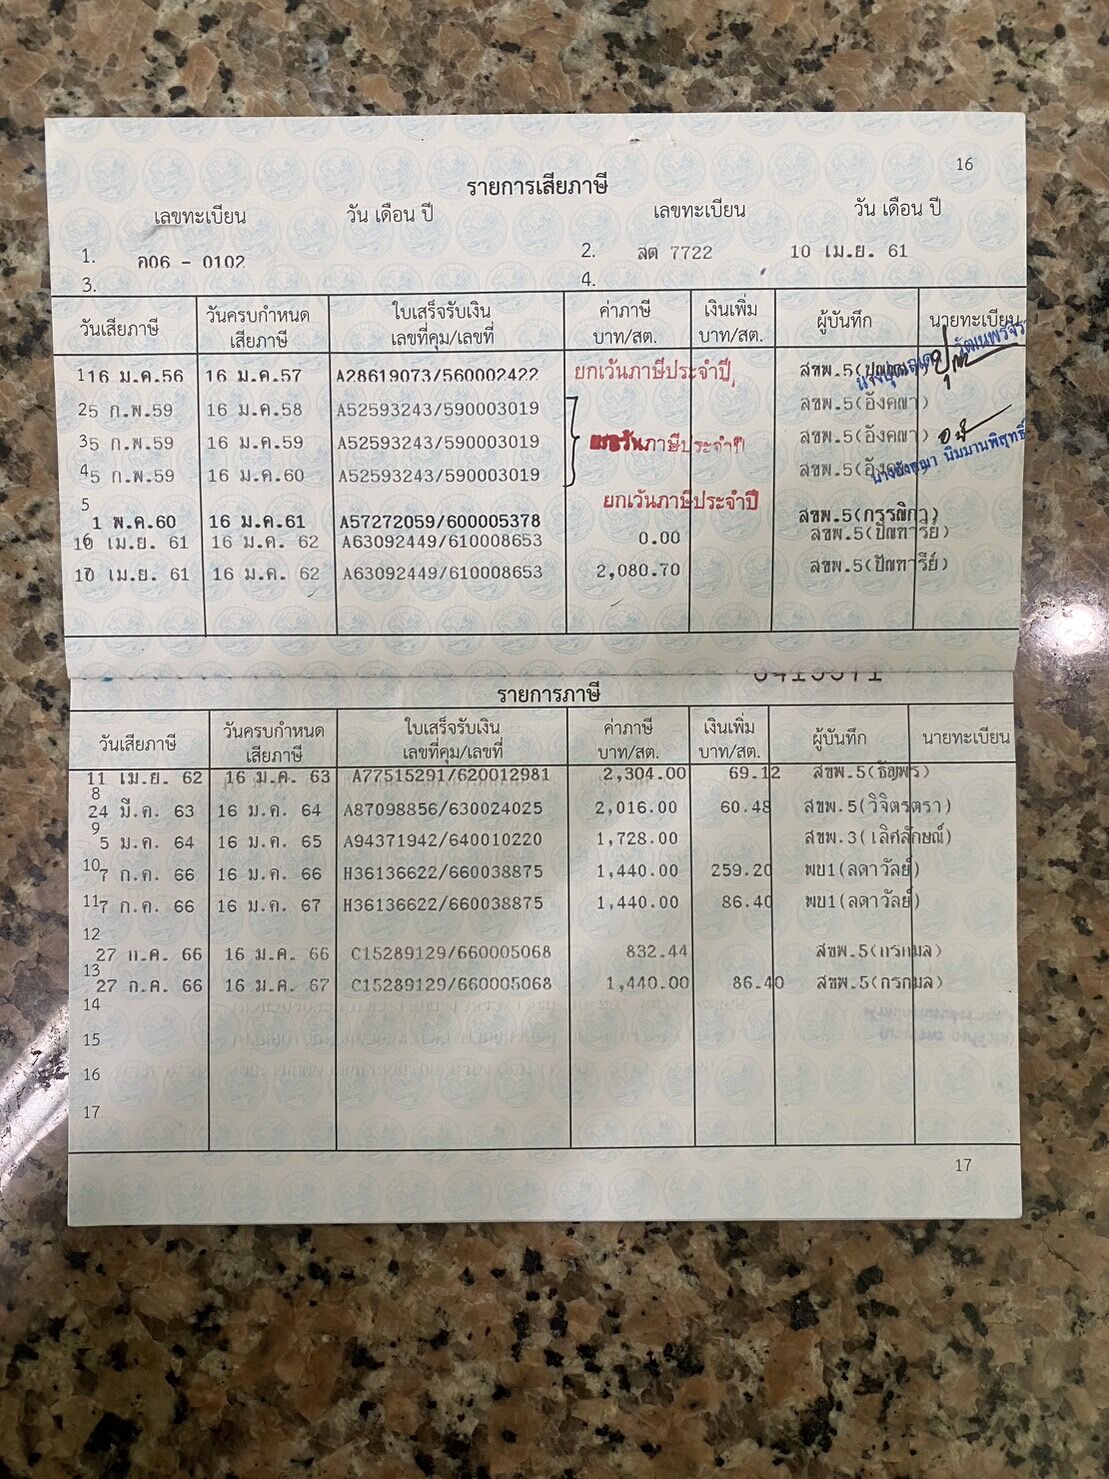 16
รายการเสียภาษี
เลขทะเบียน วัน เดือน ปี เลขทะเบียน วัน เดือน ปี
1. ค06 - 0102 2. สต 7722 10 เม.ย. 61
3. 4.
วันเสียภาษี วันครบกำหนดเสียภาษี ใบเสร็จรับเงิน เลขที่คุม/เลขที่ ค่าภาษี บาท/สต. เงินเพิ่ม บาท/สต. ผู้บันทึก นายทะเบียน
1 16 ม.ค.56 16 ม.ค.57 A28619073/560002422 ยกเว้นภาษีประจำปี สขพ.5
2 5 ก.พ.59 16 ม.ค.58 A52593243/590003019 สขพ.5(อังคณา)
3 5 ก.พ.59 16 ม.ค.59 A52593243/590003019 ภาษีประจำปี สขพ.5(อังคณา)
4 5 ก.พ.59 16 ม.ค.60 A52593243/590003019 สขพ.5 นิมมานพิสุทธิ์
5 1 พ.ค.60 16 ม.ค.61 A57272059/600005378 ยกเว้นภาษีประจำปี สขพ.5(กรรณิกา)
6 10 เม.ย. 61 16 ม.ค. 62 A63092449/610008653 0.00 สขพ.5(ปัณฑารีย์)
7 10 เม.ย. 61 16 ม.ค. 62 A63092449/610008653 2,080.70 สขพ.5(ปัณฑารีย์)
รายการภาษี
วันเสียภาษี วันครบกำหนดเสียภาษี ใบเสร็จรับเงิน เลขที่คุม/เลขที่ ค่าภาษี บาท/สต. เงินเพิ่ม บาท/สต. ผู้บันทึก นายทะเบียน
11 เม.ย. 62 16 ม.ค. 63 A77515291/620012981 2,304.00 69.12 สขพ.5(ธัญพร)
8
24 มี.ค. 63 16 ม.ค. 64 A87098856/630024025 2,016.00 60.48 สขพ.5(วิจิตรตรา)
9
5 ม.ค. 64 16 ม.ค. 65 A94371942/640010220 1,728.00 สขพ.3(เลิศลักษณ์)
10 7 ก.ค. 66 16 ม.ค. 66 H36136622/660038875 1,440.00 259.20 พบ1(ลดาวัลย์)
11 7 ก.ค. 66 16 ม.ค. 67 H36136622/660038875 1,440.00 86.40 พบ1(ลดาวัลย์)
12
27 ก.ค. 66 16 ม.ค. 66 C15289129/660005068 832.44 สขพ.5(กรกมล)
13
27 ก.ค. 66 16 ม.ค. 67 C15289129/660005068 1,440.00 86.40 สขพ.5(กรกมล)
14
15
16
17
17